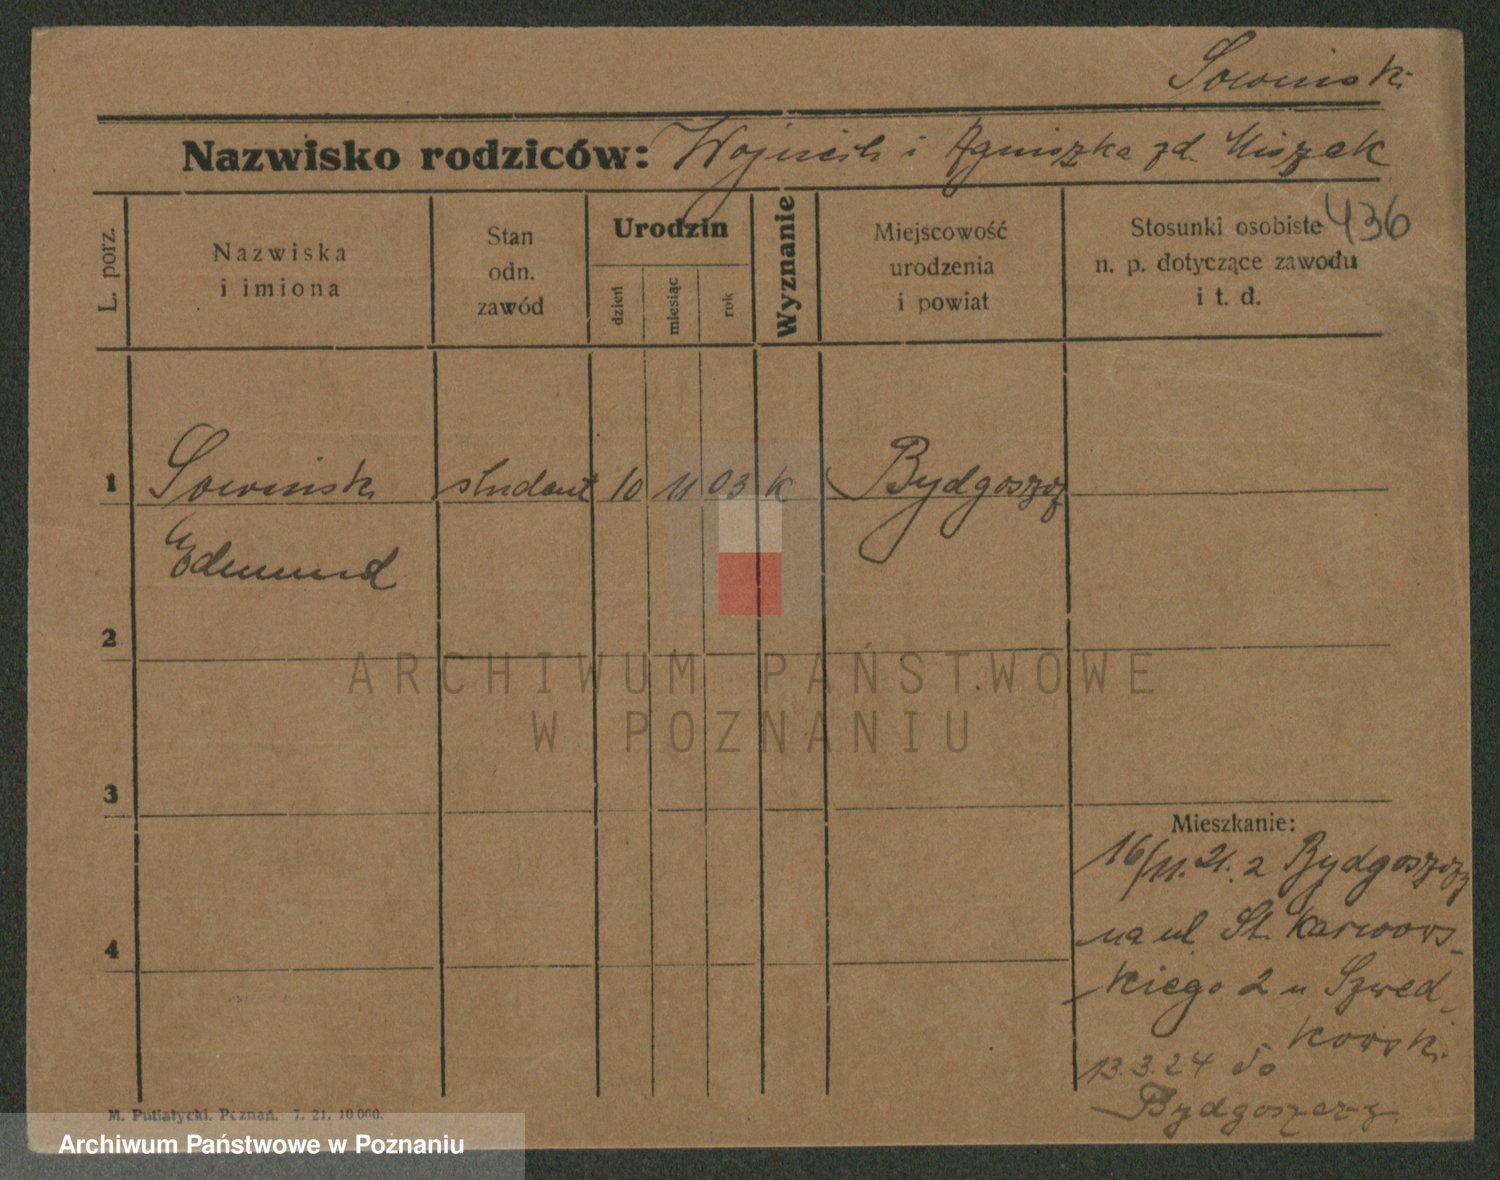 Sowinski
Nazwisko rodziców: Wojciech i Agnieszka zd.
436
L. porz.
Nazwiska
i imiona
Stan
odn.
zawód
Urodzin
dzień
miesiąc
rok
Wyznanie
Miejscowość
urodzenia
i powiat
Stosunki osobiste
n. p. dotyczące zawodu
i t. d.
1
Sowinski student 10 11 03 K Bydgoszcz
Edmund
2
ARCHIWUM PAŃSTWOWE
W POZNANIU
3
Mieszkanie:
16/11. 21. z Bydgoszczy
na ul. St. Karwows-
4
kiego 2 u Szwed-
kowski
13.3.24 do
Bydgoszczy
M. Putiatycki. Poznań. 7. 21. 10 000.
Archiwum Państwowe w Poznaniu